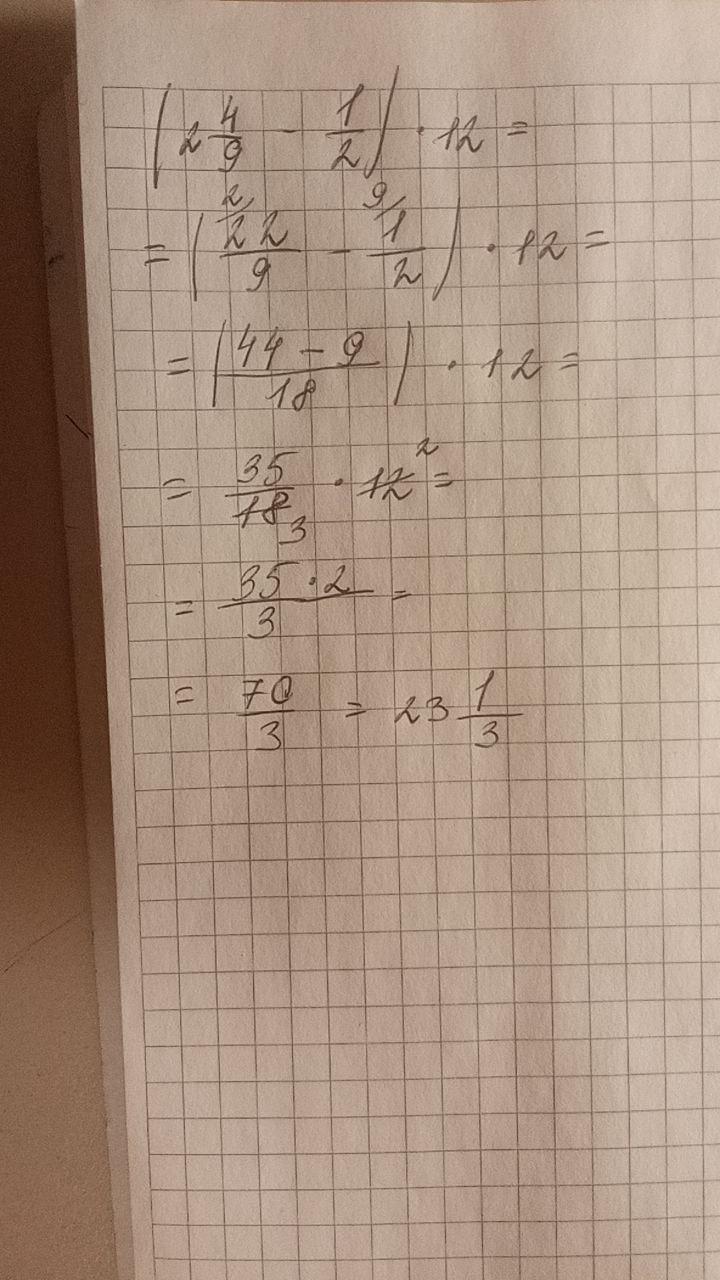 (2 4/9 - 1/2) · 12 =
= (²⁄22/9 - ⁹⁄1/2) · 12 =
= (44 - 9/18) · 12 =
= 35/18 3 · 12² =
= 35 · 2/3 =
= 70/3 = 23 1/3